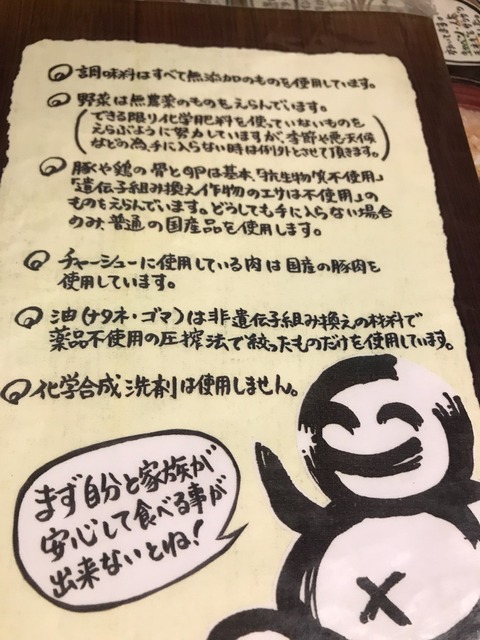 調味料はすべて無添加のものを使用しています。
野菜は無農薬のものをえらんでいます。
(できる限り化学肥料を使っていないものを
えらぶように努力していますが、季節や悪天候
などの為、手に入らない時は例外とさせて頂きます。)
豚や鶏の骨と卵は基本、「抗生物質不使用」
「遺伝子組み換え作物のエサは不使用」の
ものをえらんでいます。どうしても手に入らない場合
のみ、普通の国産品を使用します。
チャーシューに使用している肉は国産の豚肉を
使用しています。
油(ナタネ・ゴマ)は非遺伝子組み換えの材料で
薬品不使用の圧搾法で絞ったものだけを使用しています。
化学合成洗剤は使用しません。
まず自分と家族が
安心して食べる事が
出来ないとね!